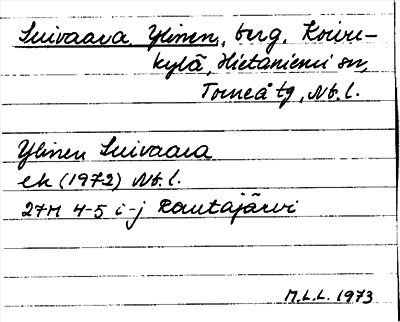 Suivaara, Ylinen, berg, Koivu-
kylä, Hietaniemi sn,
Torneå tg, Nb. l.
Ylinen Suivaara
ek (1972) Nb. l.
27M 4-5 i-j Rautajärvi
M.L.L. 1973